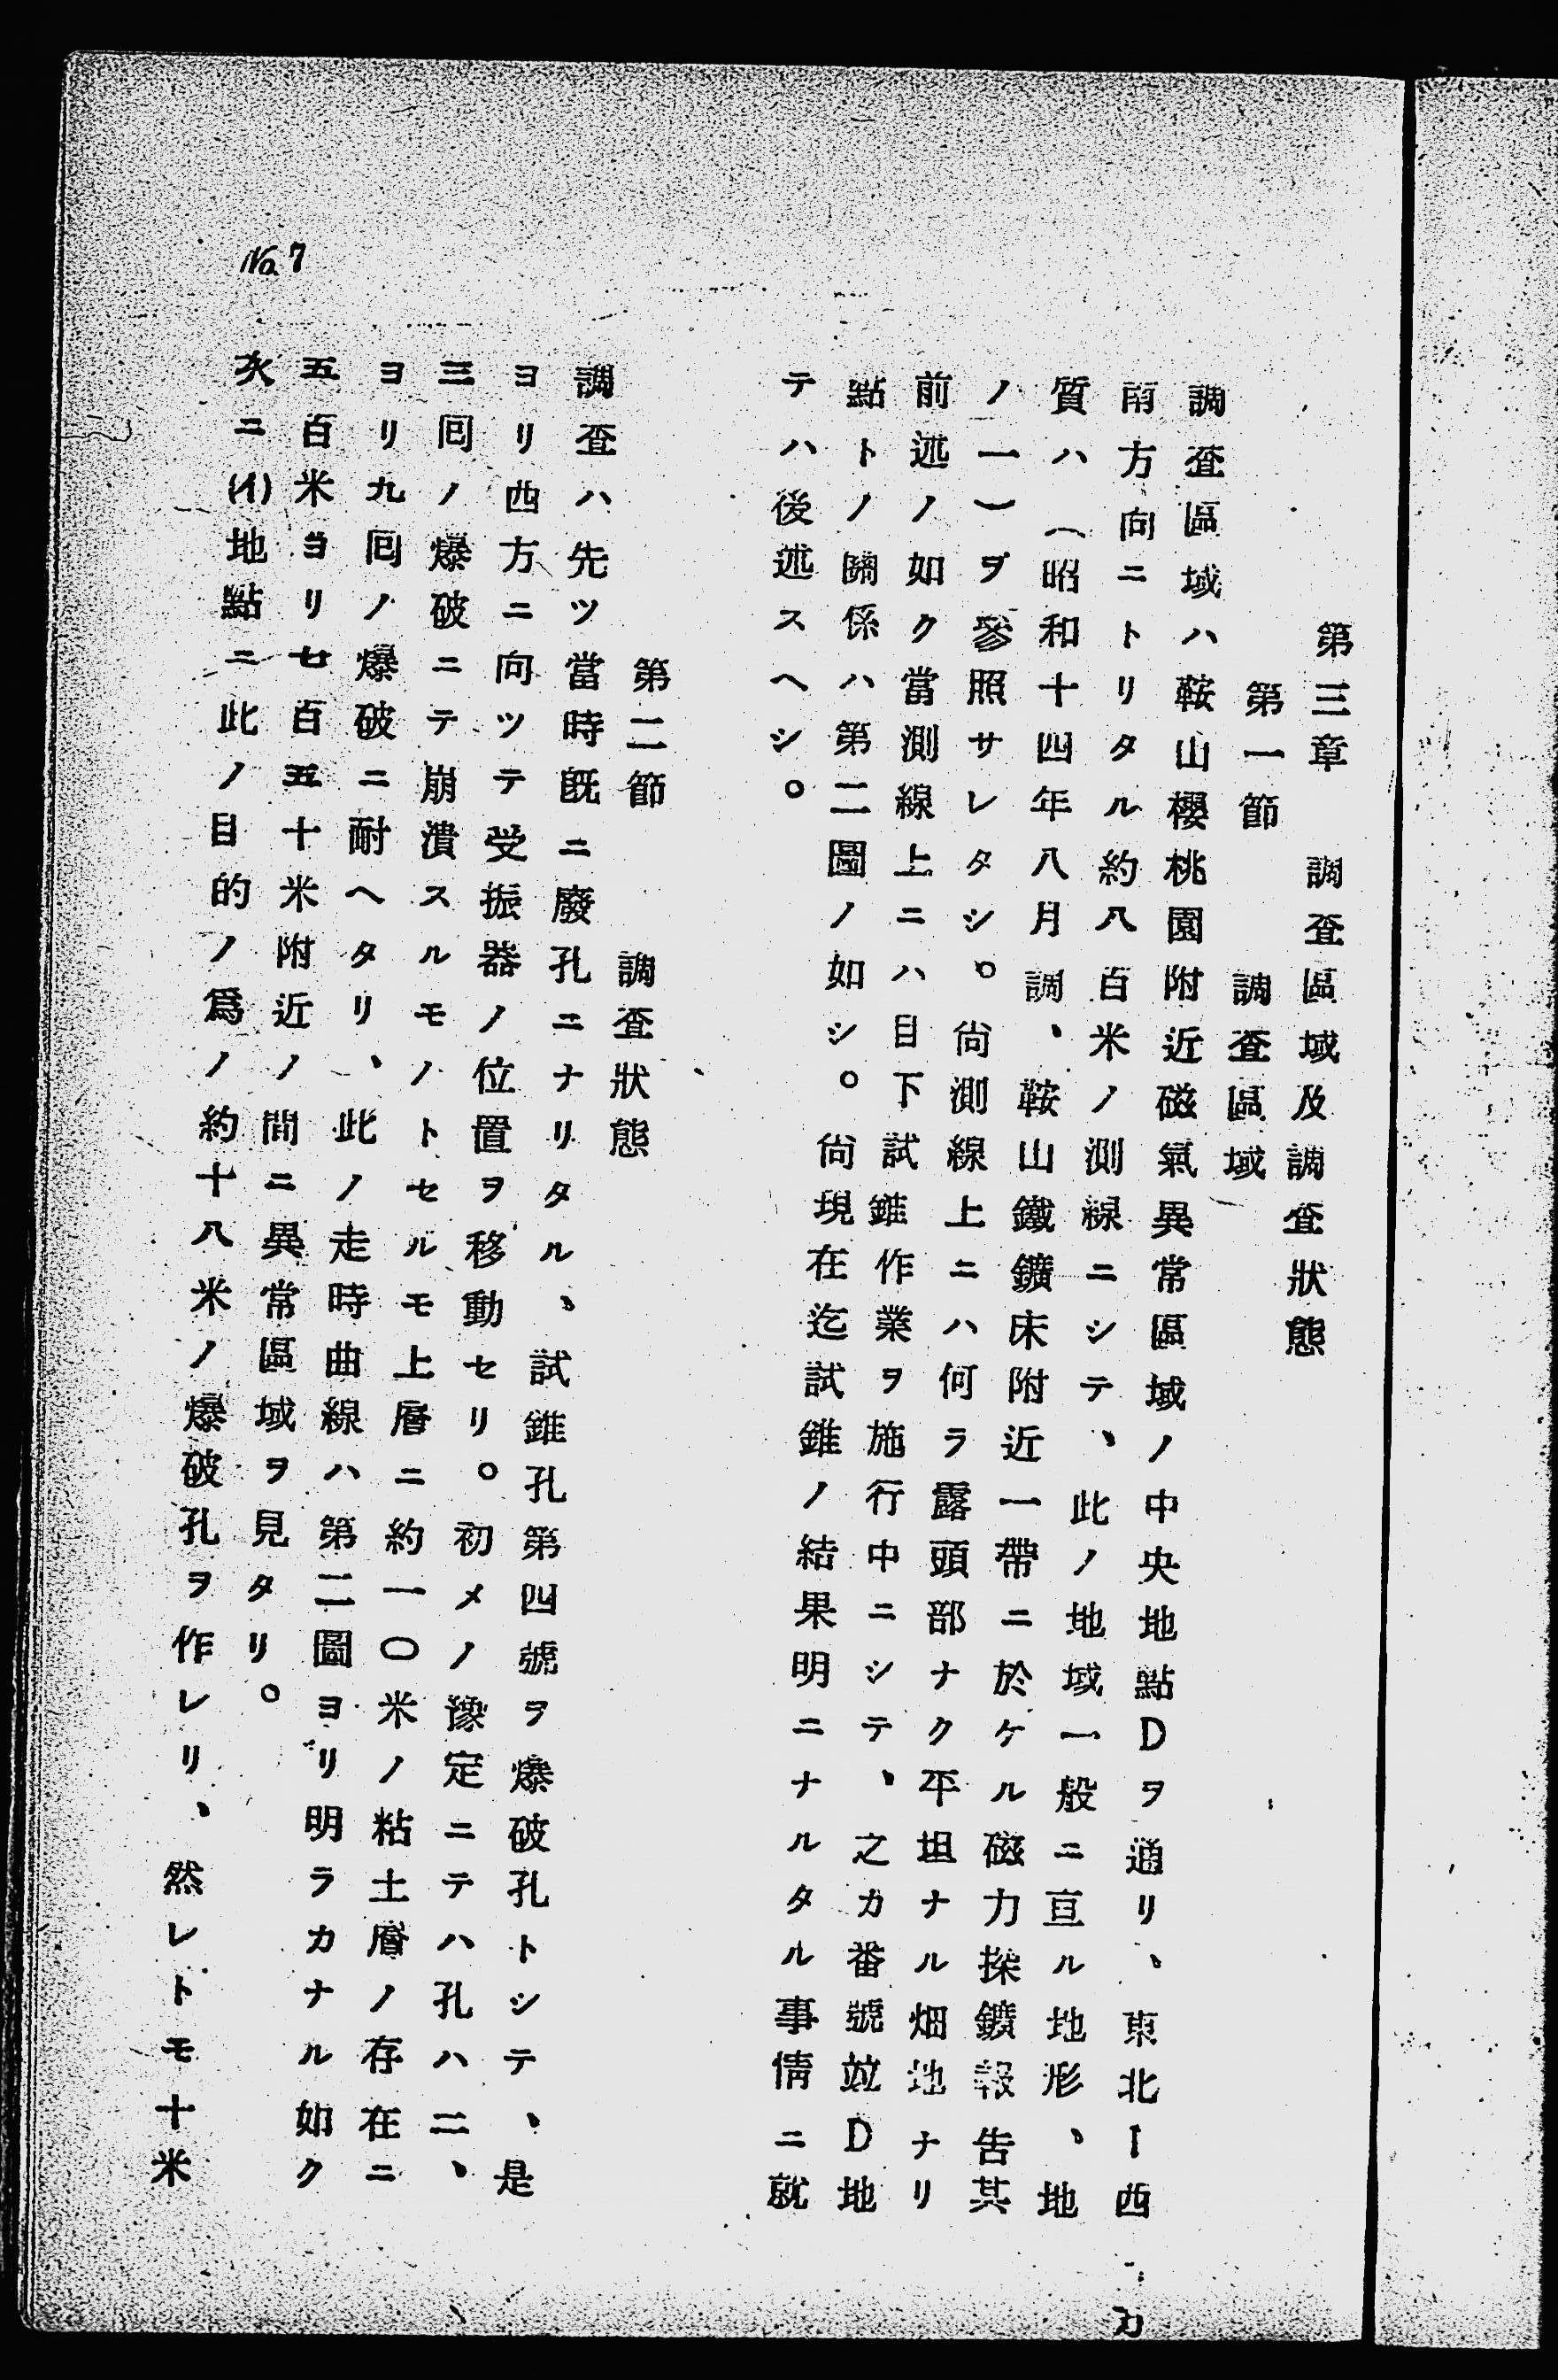 第三章　調査區域及調査狀態
第一節　調査區域
調査區域ハ鞍山櫻桃園附近磁氣異常區域ノ中央地點Dヲ通リ、東北ー西
南方向ニトリタル約八百米ノ測線ニシテ、此ノ地域一般ニ亘ル地形、地
質ハ（昭和十四年八月調、鞍山鐵鑛床附近一帶ニ於ケル磁力探鑛報告其
ノ一）ヲ參照サレタシ。尙測線上ニハ何ラ露頭部ナク平坦ナル畑地ナリ
前述ノ如ク當測線上ニハ目下試錐作業ヲ施行中ニシテ、之カ番號竝D地
點トノ關係ハ第二圖ノ如シ。尙現在迄試錐ノ結果明ニナルタル事情ニ就
テハ後述スヘシ。
第二節　調査狀態
調査ハ先ツ當時旣ニ廢孔ニナリタル、試錐孔第四號ヲ爆破孔トシテ、是
ヨリ西方ニ向ツテ受振器ノ位置ヲ移動セリ。初メノ豫定ニテハ孔ハ二、
三囘ノ爆破ニテ崩潰スルモノトセルモ上層ニ約一〇米ノ粘土層ノ存在ニ
ヨリ九囘ノ爆破ニ耐ヘタリ、此ノ走時曲線ハ第二圖ヨリ明ラカナル如ク
五百米ヨリ七百五十米附近ノ間ニ異常區域ヲ見タリ。
次ニ(イ)地點ニ此ノ目的ノ爲ノ約十八米ノ爆破孔ヲ作レリ、然レトモ十米
No.7